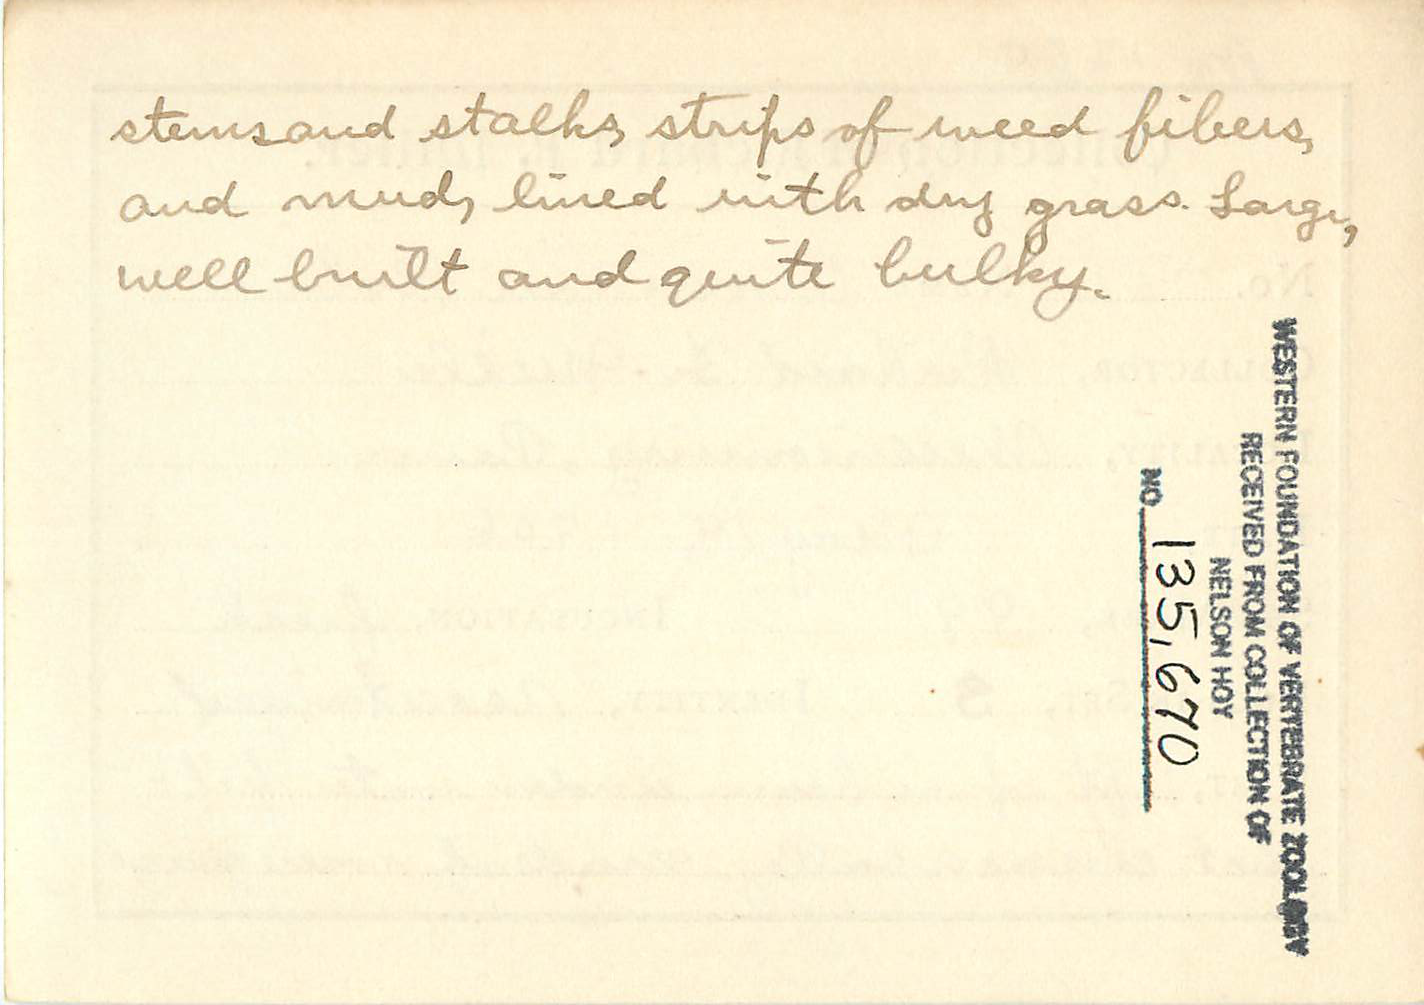 stems and stalks, strips of weed fibers,
and mud, lined with dry grass. Large,
well built and quite bulky.
WESTERN FOUNDATION OF VERTEBRATE ZOOLOGY
RECEIVED FROM COLLECTION OF
NELSON HOY
NO. 135,670